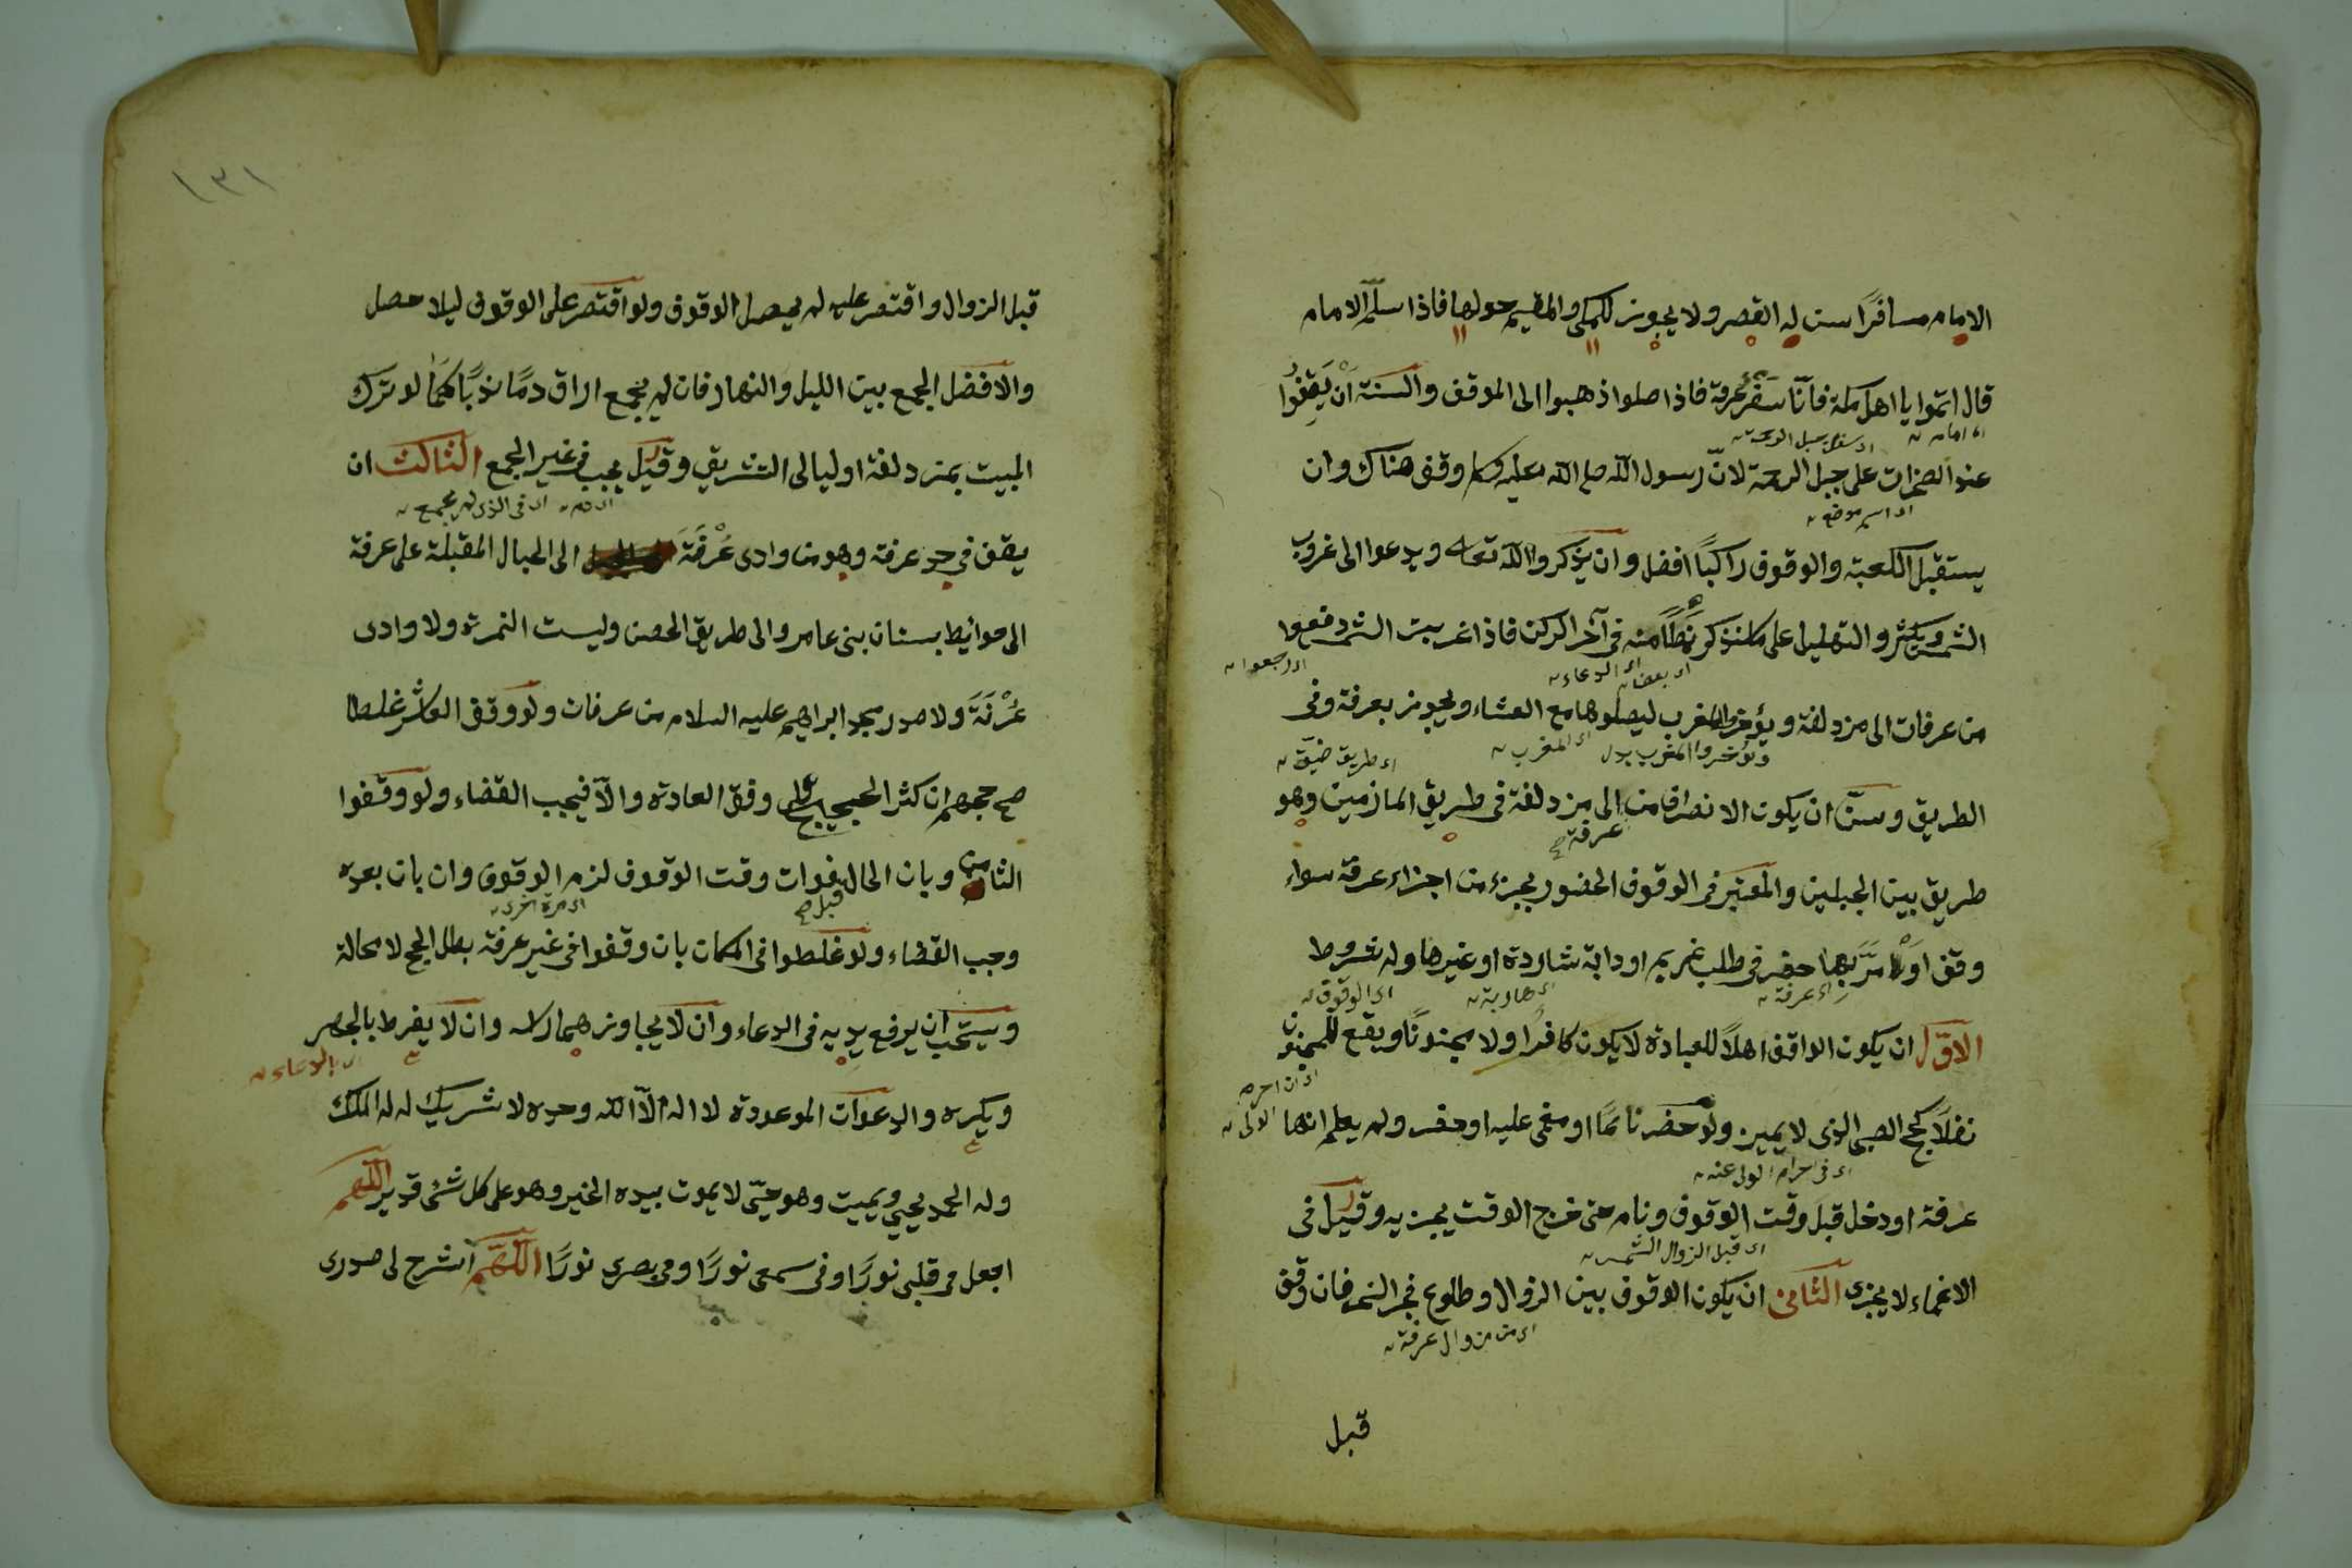 الامام مسافرًا سن له القصر ولا يجوز للمكي والمقيم حولها فاذا سلّم الامام
قال اتموا يا اهل مكة فانّا سَفْر عرفة فاذا صلوا ذهبوا الى الموقف والسنة اَنْ يَقِفُوا
عند الصخرات على جبل الرحمة لانّ رسول الله صلى الله عليه وسلم وقف هناك وان
اى اسم موضع
يستقبل الكعبة والوقوف راكباً افضل وان يذكروا الله تعالى ويدعوا الى غروب
الشمس ويكثروا التهليل على ما نذكر نمطًا منه فى آخر الركن فاذا غربت الشمس دفعوا
اى بعضا اى الدعاء
اى رجعوا
من عرفات الى مزدلفة ويؤخروا المغرب ليصلوها مع العشاء ويجوز بعرفة وفى
ويؤخروا المغرب بدل اى المغرب
اى طريق ضيق
الطريق وسنّ ان يكون الانصراف من الى مزدلفة فى طريق المازمين وهو
عرفة صح
طريق بين الجبلين والمعتبر فى الوقوف الحضور بجزء من اجزاء عرفة سواء
وقف اَوْ مَرَّ بها حضر فى طلب غريم او دابة شاردة او غيرها وله شروط
اى عرفة
اى هاربة
اى الوقوف
الاوّل ان يكون الواقف اهلاً للعبادة لا يكون كافرا ولا مجنونًا ويقع للمجنون
نفلاً كحج الصبى الذى لا يميز ولو حضر نائمًا او مغمى عليه او حضر ولم يعلم انها
اى فى احرام الولى عنه
عرفة او دخل قبل وقت الوقوف ونام حتى خرج الوقت يجزيه وقيل فى
اى قبل الزوال الشمس
الاغماء لا يجزى الثانى ان يكون الوقوف بين الزوال وطلوع فجر النحر فان وقف
اى من زوال عرفة
قبل
١٣١
قبل الزوال واقتصر عليه لم يحصل الوقوف ولو اقتصر على الوقوف ليلا حصل
والافضل الجمع بين الليل والنهار فان لم يجمع اراق دمًا ندبًا كما لو ترك
المبيت بمزدلفة او ليالى التشريق وقيل يجب فى غير الجمع الثالث ان
اى دم اى فى الذى لم يجمع
يقف فى حد عرفة وهو من وادى عُرْفَةَ الى الجبال المقبلة على عرفة
الى حوائيط بستان بنى عامر والى طريق الحصن وليست النمرة ولا وادى
عُرْنَةَ ولا صدر مسجد ابراهيم عليه السلام من عرفات ولو وقف العاشر غلطا
صح حجهم ان كثر الحجيج على وفق العادة والاّ فيجب القضاء ولو وقفوا
الثامن وبان الحال فوات وقت الوقوف لزم الوقوف وان بان بعده
قبل صح
اى مرة اخرى
وجب القضاء ولو غلطوا فى المكان بان وقفوا فى غير عرفة بطل الحج لا محالة
ويستحب ان يرفع يديه فى الدعاء وان لا يجاوز هما راسه وان لا يفرط بالجهر
بالدعاء
ويكره والدعوات الموعودة لا اله الاّ الله وحده لا شريك له له الملك
وله الحمد يحيى ويميت وهو حيّ لا يموت بيده الخير وهو على كل شئ قدير اللهم
اجعل فى قلبى نورًا وفى سمعى نورًا وفى بصرى نورًا اللّهمّ اشرح لى صدرى